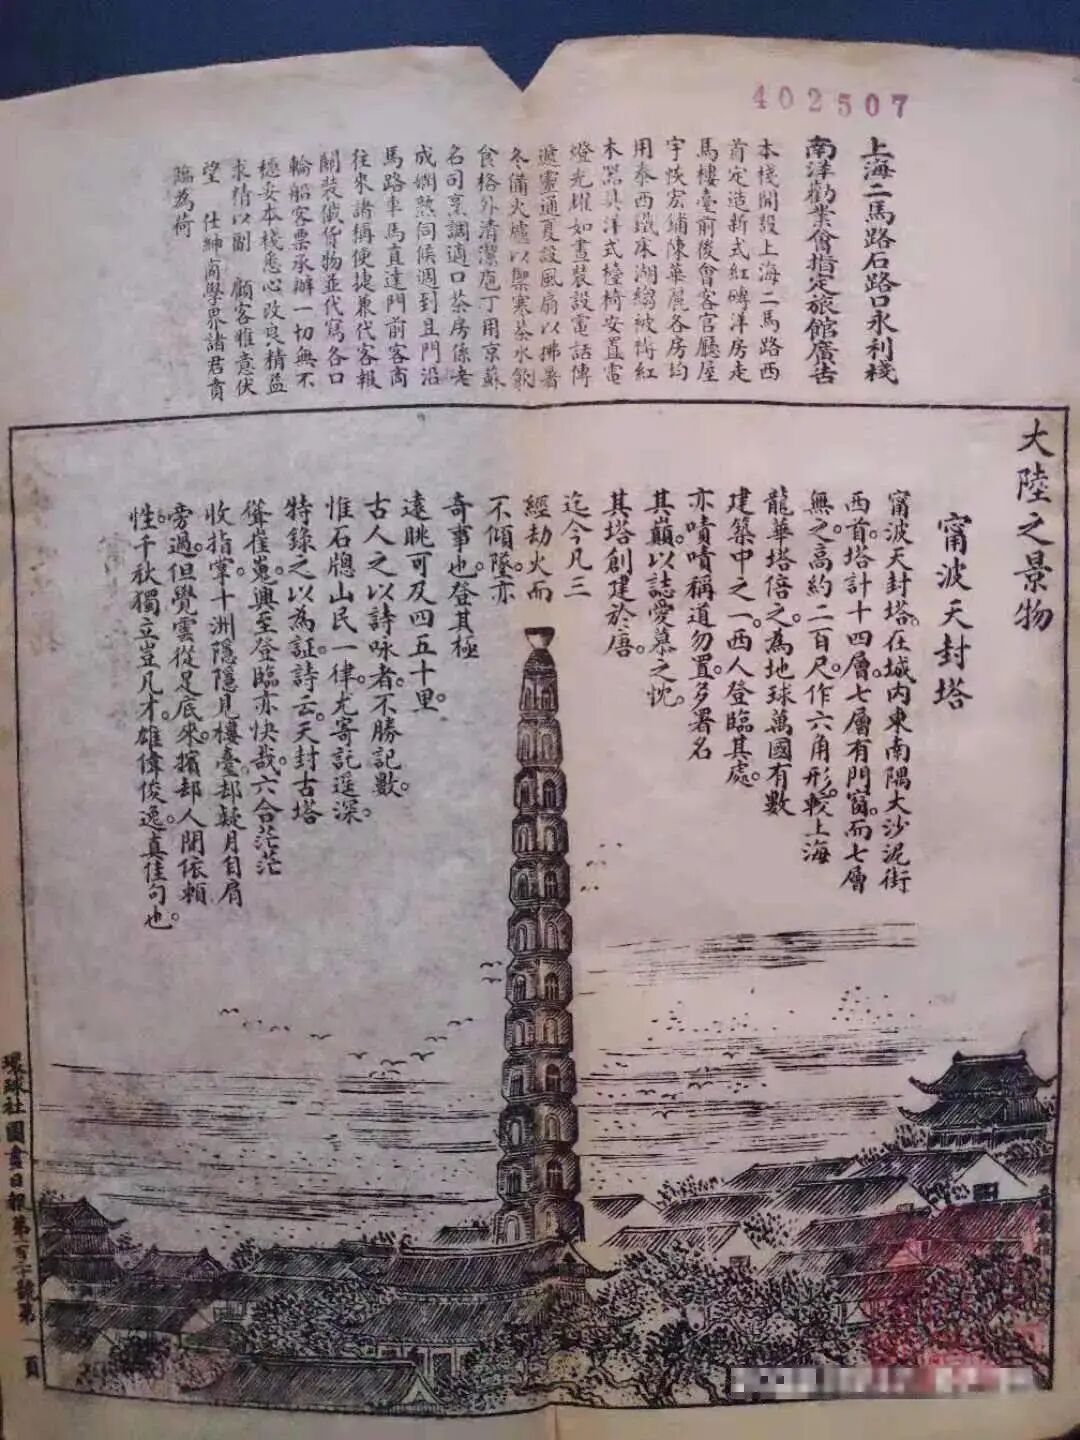 402507
上海二馬路石路口永利棧
南洋勸業會指定旅館廣告
本棧開設上海二馬路西
首定造新式紅磚洋房走
馬樓臺前後會客官廳屋
宇恢宏鋪陳華麗各房均
用泰西鐵床湖縐被褥紅
木器具洋式檯椅安置電
燈光耀如晝裝設電話傳
遞靈通夏設風扇以拂暑
冬備火爐以禦寒茶水飲
食格外清潔庖丁用京蘇
名司烹調適口茶房係老
成嫻熟伺候週到且門沿
馬路車馬直達門前客商
往來諸稱便捷兼代客報
關裝儎貨物並代寫各口
輪船客票承辦一切無不
穩妥本棧悉心改良精益
求精以副 顧客雅意伏
望 仕紳商學界諸君賁
臨為荷
大陸之景物
甯波天封塔
甯波天封塔。在城內東南隅大沙泥街
西首。塔計十四層。七層有門窗。而七層
無之。高約二百尺。作六角形。較上海
龍華塔倍之。為地球萬國有數
建築中之一。西人登臨其處。
亦嘖嘖稱道勿置。多署名
其巔。以誌愛慕之忱。
其塔創建於唐。
迄今凡三
經劫火而
不傾墜。亦
奇事也。登其極
遠眺可及四五十里。
古人之以詩咏者。不勝記數。
惟石牕山民一律。尤寄託遥深。
特錄之以為証。詩云。天封古塔
聳崔嵬。興至登臨亦快哉。六合茫茫
收指掌。十洲隱隱見樓臺。却疑月自肩
旁過。但覺雲從足底來。擯却人間依賴
性。千秋獨立豈凡才。雄偉俊逸。真佳句也。
環球社圖畫日報第一百十號第一頁